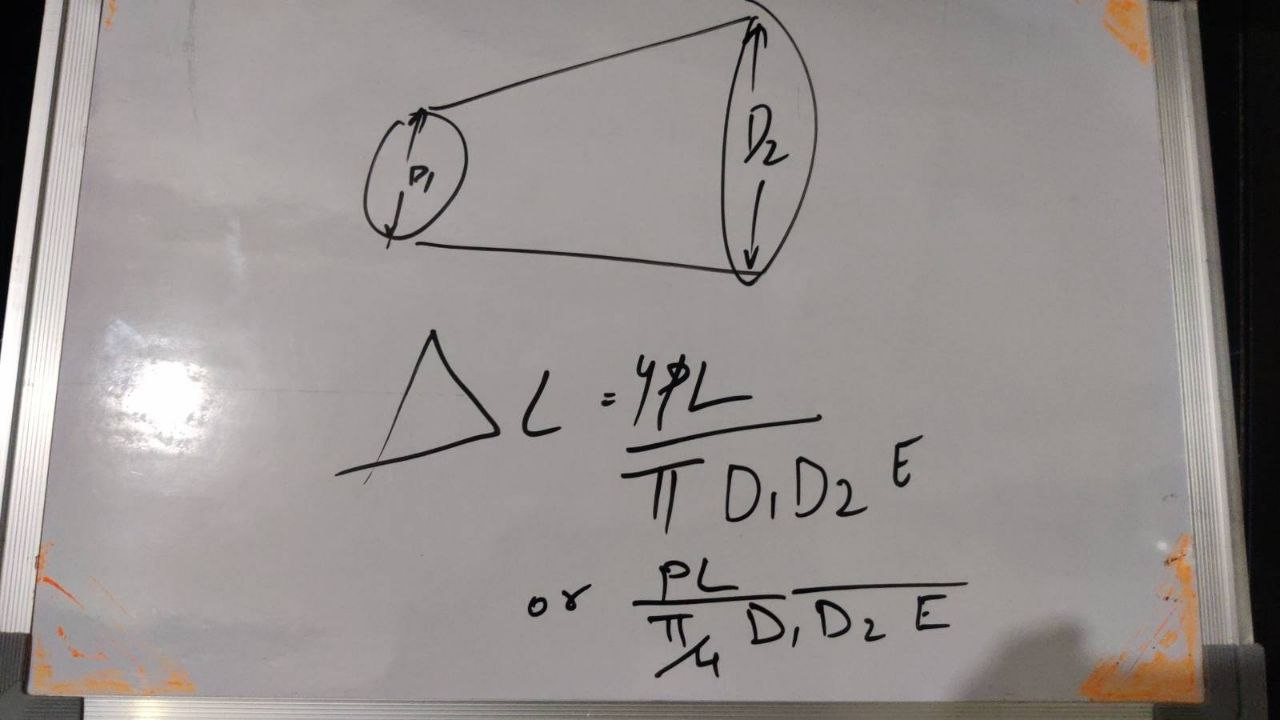 D1
D2
ΔL = 4PL
π D1D2 E
or PL
π/4 D1D2 E